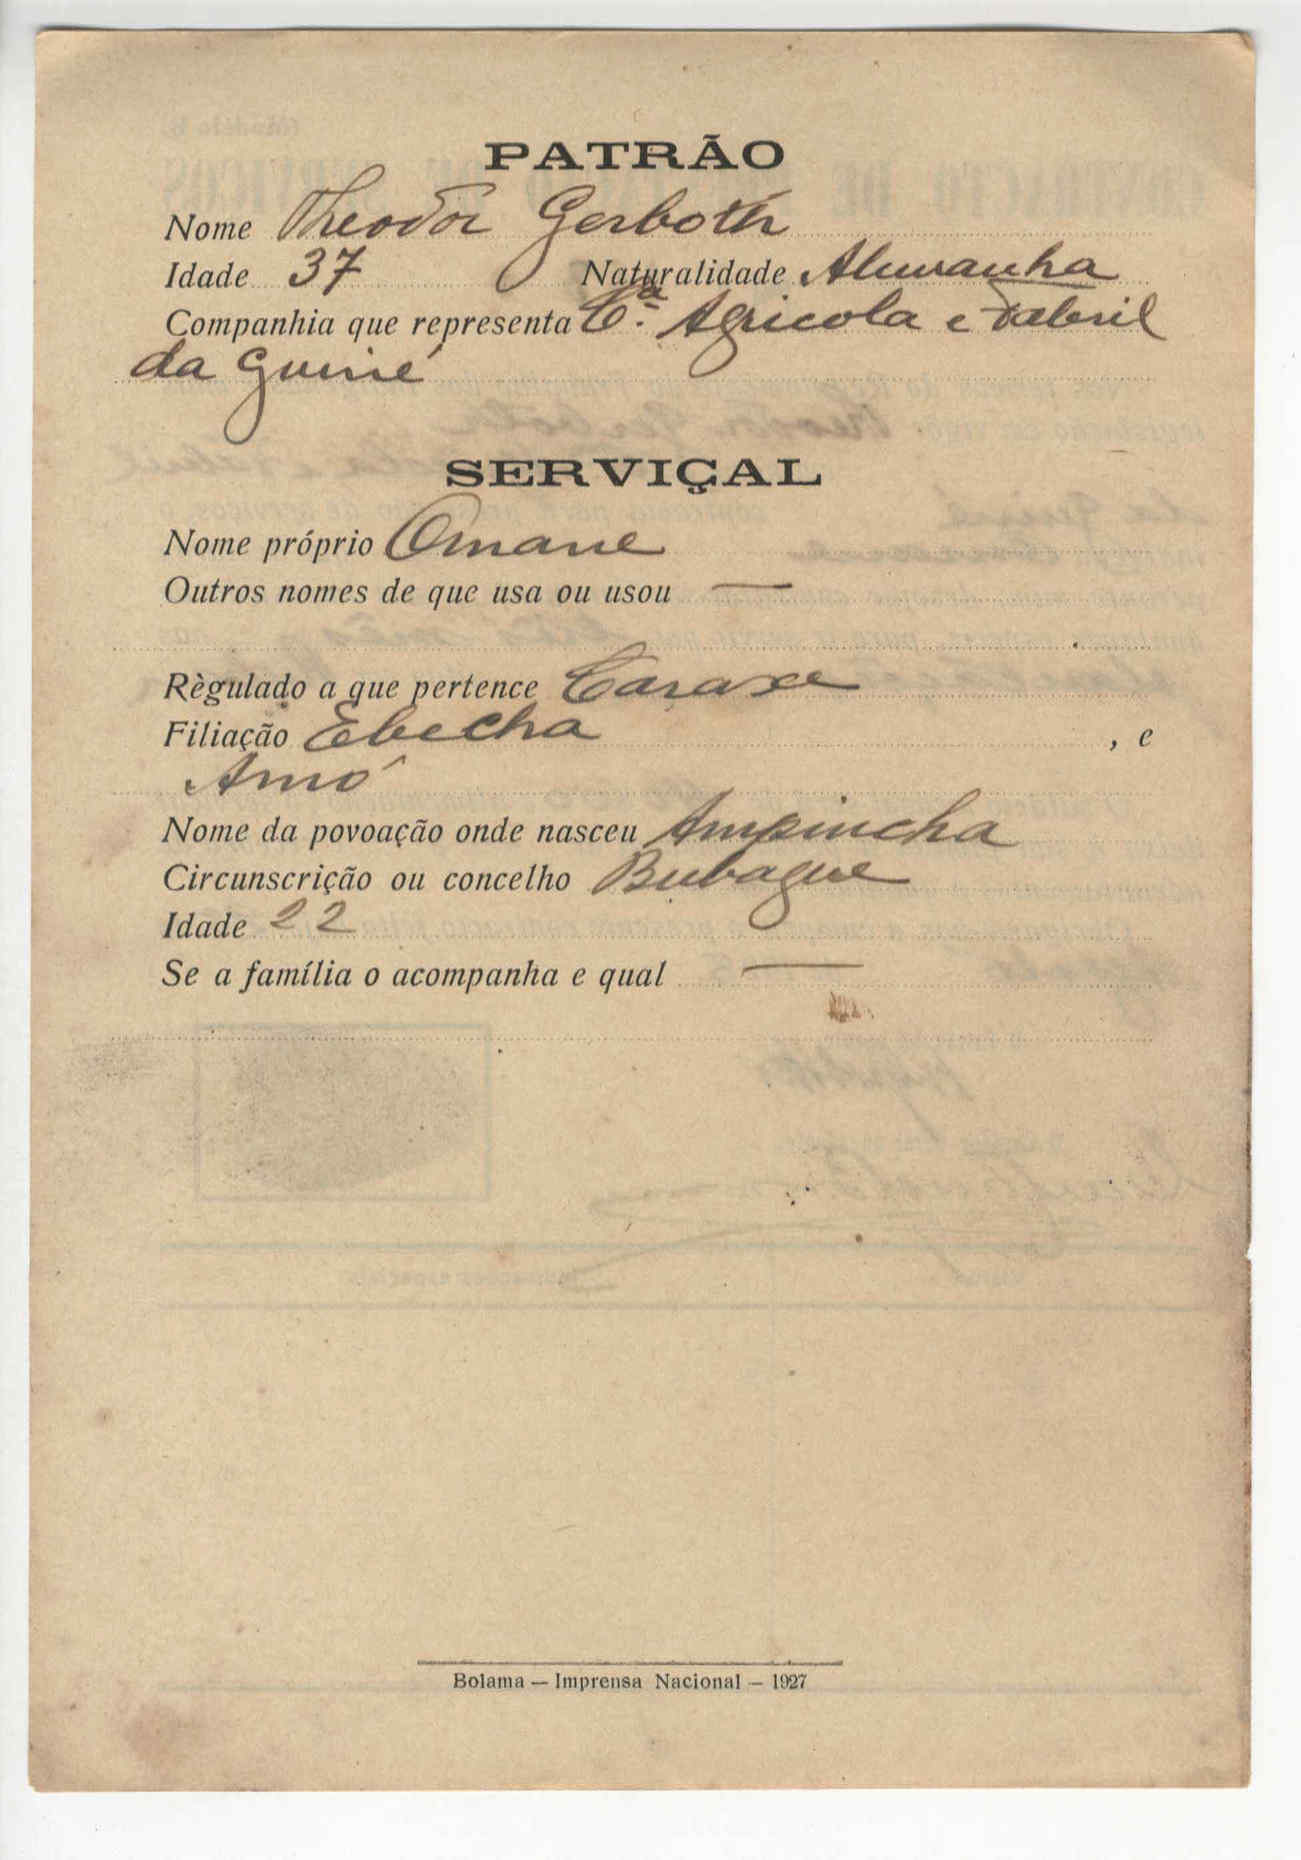 PATRÃO
Nome Theodor Gerboth
Idade 37 Naturalidade Alemanha
Companhia que representa C.ª Agricola e Fabril
da Guiné
SERVIÇAL
Nome próprio Omane
Outros nomes de que usa ou usou —
Règulado a que pertence Caraxe
Filiação Ebecha , e
Amó
Nome da povoação onde nasceu Ampincha
Circunscrição ou concelho Bubaque
Idade 22
Se a família o acompanha e qual —
Bolama — Imprensa Nacional — 1927